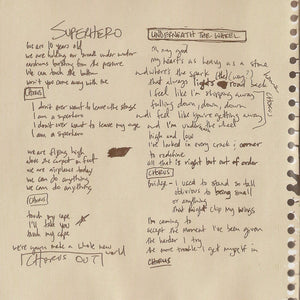 SUPERHERO
we are 10 years old
we are holding our breath under water
We can touch the bottom
don't you come away with me
CHORUS
I don't ever want to leave the stage
I am a superhero
I don't ever want to leave my cape
I am a superhero
we are flying high
above the carpet a foot
we are airplanes today
we can do anything
we can do anything
CHORUS
touch my cape
I'll take you
touch my cape
we're gonna make a whole new world
CHORUS OUT
UNDERNEATH THE WHEEL
Oh my god
My hearts as heavy as a stone
and where's the spark (the) (way?)
that always lights road back
I feel like I'm slipping away
falling down, down, down
and I feel like you're getting away
and I'm under the wheel
high and low
I've looked in every crack & corner
to redefine
all that is right but out of order
CHORUS
Bridge - I used to stand so tall
oblivious to being small
or anything
that might clip my wings
I'm coming to
accept the moment I've been given
the harder I try
the more trouble I get myself in
CHORUS
CHORUS